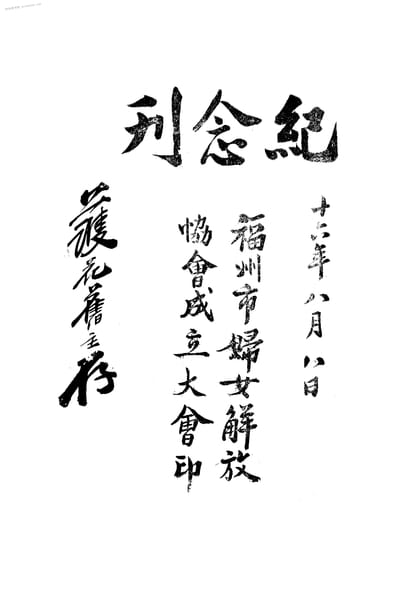 紀念刊
十六年八月八日
福州市婦女解放
協會成立大會印
護花舊主存